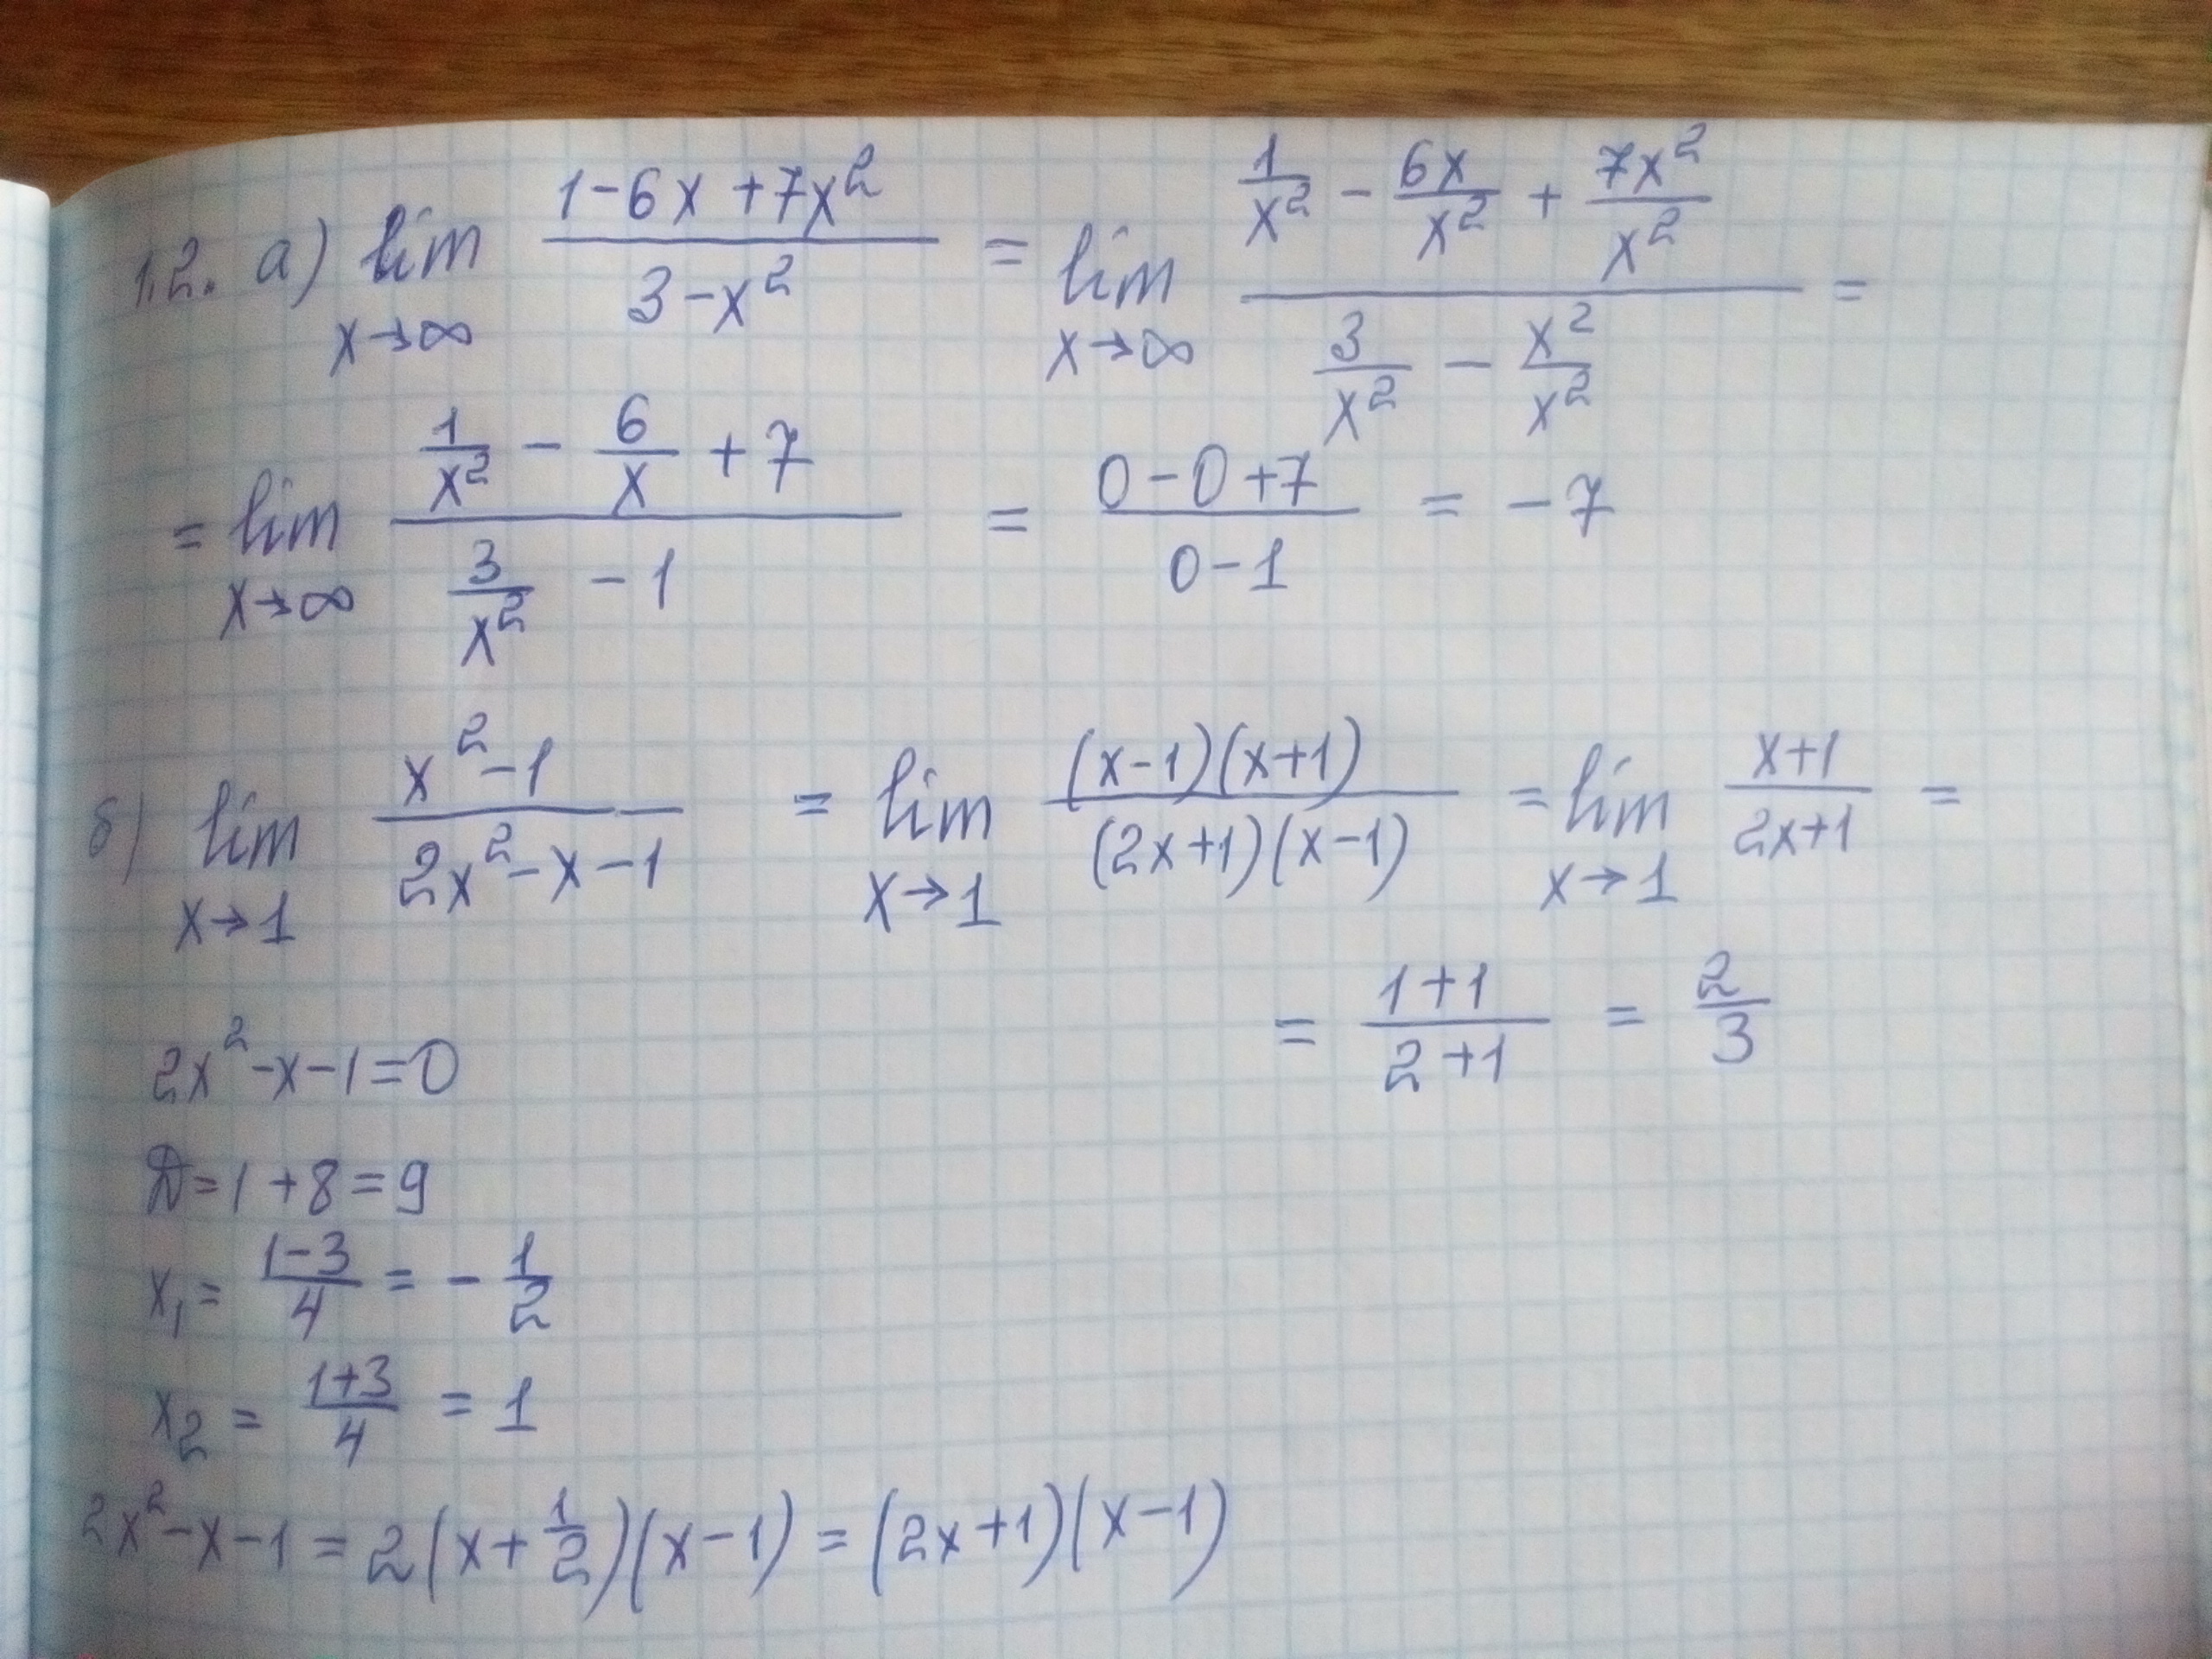 1.2. а) lim x→∞ (1-6x+7x²)/(3-x²) = lim x→∞ (1/x² - 6x/x² + 7x²/x²)/(3/x² - x²/x²) =
= lim x→∞ (1/x² - 6/x + 7)/(3/x² - 1) = (0-0+7)/(0-1) = -7
б) lim x→1 (x²-1)/(2x²-x-1) = lim x→1 ((x-1)(x+1))/((2x+1)(x-1)) = lim x→1 (x+1)/(2x+1) =
= (1+1)/(2+1) = 2/3
2x²-x-1=0
D=1+8=9
x₁= (1-3)/4 = -1/2
x₂ = (1+3)/4 = 1
2x²-x-1=2(x+1/2)(x-1)=(2x+1)(x-1)